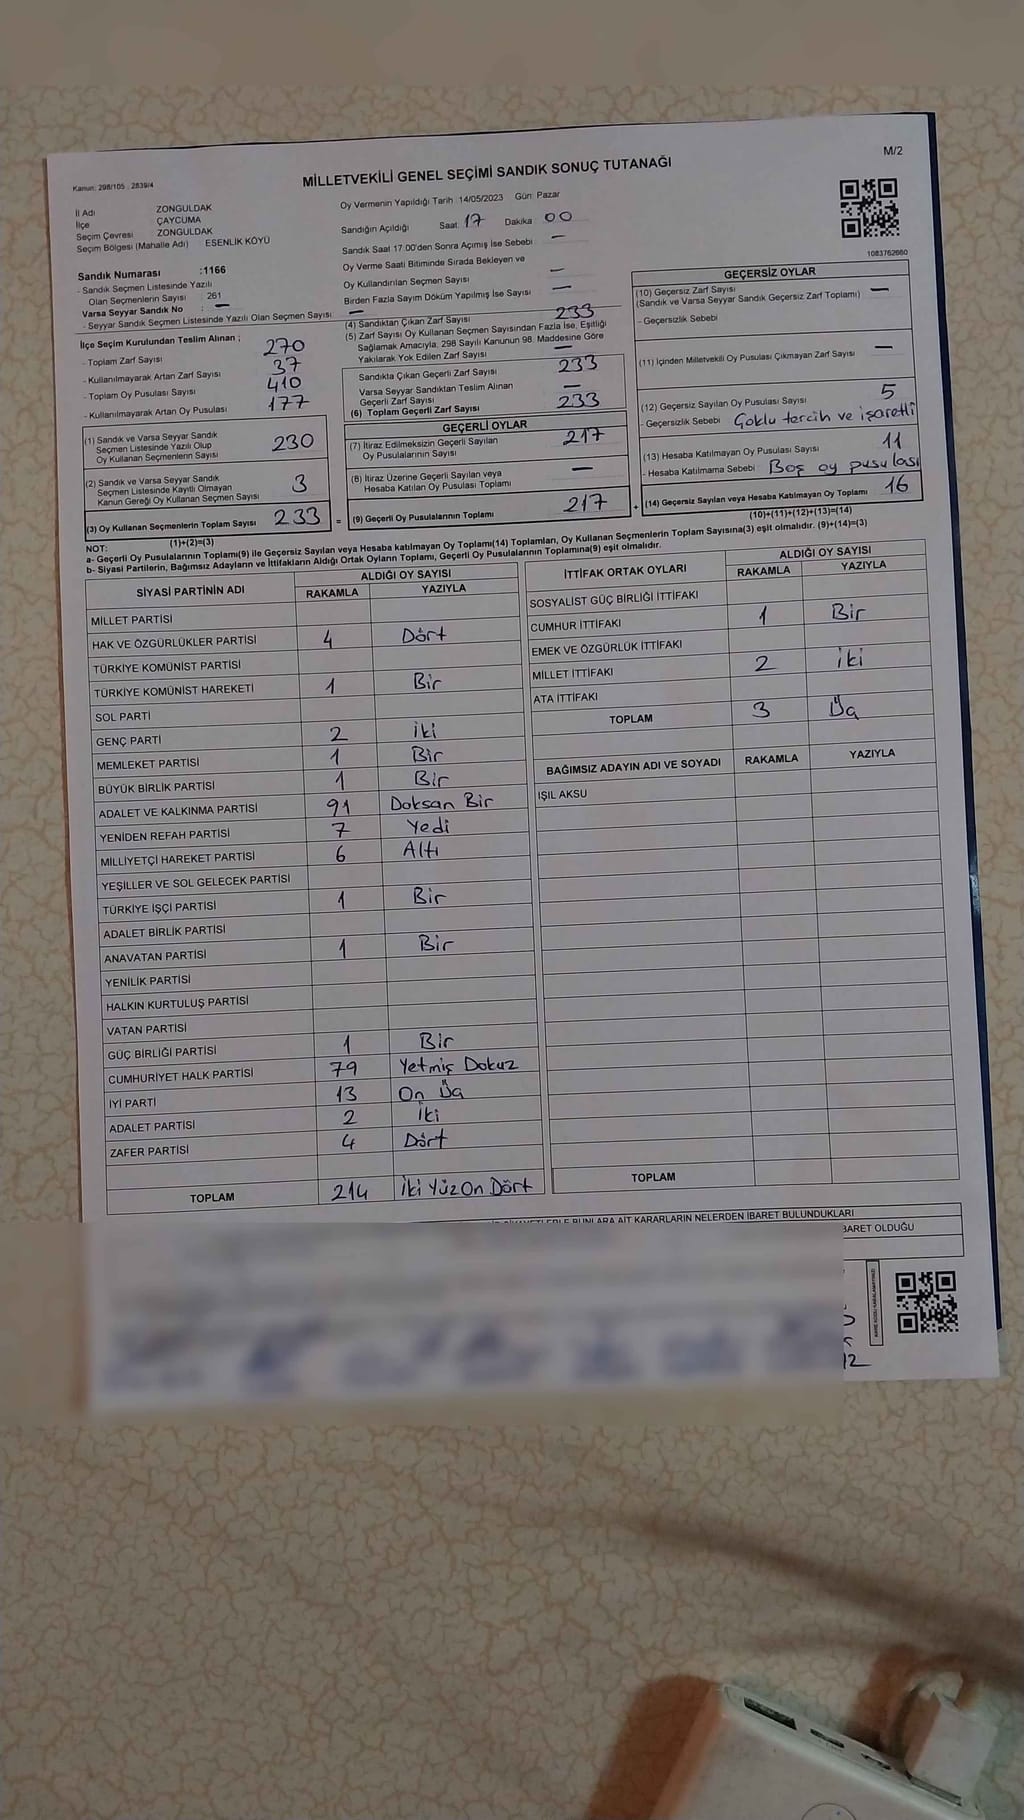 M/2
Kanun: 298/105 , 2839/4
MİLLETVEKİLİ GENEL SEÇİMİ SANDIK SONUÇ TUTANAĞI
İl Adı ZONGULDAK
İlçe ÇAYCUMA
Seçim Çevresi ZONGULDAK
Seçim Bölgesi (Mahalle Adı) ESENLİK KÖYÜ
Sandık Numarası :1166
- Sandık Seçmen Listesinde Yazılı
Olan Seçmenlerin Sayısı : 261
Varsa Seyyar Sandık No : —
- Seyyar Sandık Seçmen Listesinde Yazılı Olan Seçmen Sayısı : —
İlçe Seçim Kurulundan Teslim Alınan ;
- Toplam Zarf Sayısı 270
- Kullanılmayarak Artan Zarf Sayısı 37
- Toplam Oy Pusulası Sayısı 410
- Kullanılmayarak Artan Oy Pusulası 177
(1) Sandık ve Varsa Seyyar Sandık
Seçmen Listesinde Yazılı Olup
Oy Kullanan Seçmenlerin Sayısı 230
(2) Sandık ve Varsa Seyyar Sandık
Seçmen Listesinde Kayıtlı Olmayan
Kanun Gereği Oy Kullanan Seçmen Sayısı 3
(3) Oy Kullanan Seçmenlerin Toplam Sayısı 233 =
(1)+(2)=(3)
Oy Vermenin Yapıldığı Tarih 14/05/2023 Gün Pazar
Sandığın Açıldığı Saat 17 Dakika 00
Sandık Saat 17:00'den Sonra Açımış İse Sebebi —
Oy Verme Saati Bitiminde Sırada Bekleyen ve
Oy Kullandırılan Seçmen Sayısı —
Birden Fazla Sayım Döküm Yapılmış İse Sayısı —
(4) Sandıktan Çıkan Zarf Sayısı 233
(5) Zarf Sayısı Oy Kullanan Seçmen Sayısından Fazla İse, Eşitliği
Sağlamak Amacıyla, 298 Sayılı Kanunun 98. Maddesine Göre
Yakılarak Yok Edilen Zarf Sayısı —
Sandıkta Çıkan Geçerli Zarf Sayısı 233
Varsa Seyyar Sandıktan Teslim Alınan
Geçerli Zarf Sayısı —
(6) Toplam Geçerli Zarf Sayısı 233
GEÇERLİ OYLAR
(7) İtiraz Edilmeksizin Geçerli Sayılan
Oy Pusulalarının Sayısı 217
(8) İtiraz Üzerine Geçerli Sayılan veya
Hesaba Katılan Oy Pusulası Toplamı —
(9) Geçerli Oy Pusulalarının Toplamı 217 +
1083762660
GEÇERSİZ OYLAR
(10) Geçersiz Zarf Sayısı —
(Sandık ve Varsa Seyyar Sandık Geçersiz Zarf Toplamı)
- Geçersizlik Sebebi
(11) İçinden Milletvekili Oy Pusulası Çıkmayan Zarf Sayısı —
(12) Geçersiz Sayılan Oy Pusulası Sayısı 5
- Geçersizlik Sebebi Çoklu tercih ve işaretli
(13) Hesaba Katılmayan Oy Pusulası Sayısı 11
- Hesaba Katılmama Sebebi Boş oy pusulası
(14) Geçersiz Sayılan veya Hesaba Katılmayan Oy Toplamı 16
(10)+(11)+(12)+(13)=(14)
NOT:
a- Geçerli Oy Pusulalarının Toplamı(9) ile Geçersiz Sayılan veya Hesaba katılmayan Oy Toplamı(14) Toplamları, Oy Kullanan Seçmenlerin Toplam Sayısına(3) eşit olmalıdır. (9)+(14)=(3)
b- Siyasi Partilerin, Bağımsız Adayların ve İttifakların Aldığı Ortak Oyların Toplamı, Geçerli Oy Pusulalarının Toplamına(9) eşit olmalıdır.
SİYASİ PARTİNİN ADI ALDIĞI OY SAYISI
RAKAMLA YAZIYLA
MİLLET PARTİSİ
HAK VE ÖZGÜRLÜKLER PARTİSİ 4 Dört
TÜRKİYE KOMÜNİST PARTİSİ
TÜRKİYE KOMÜNİST HAREKETİ 1 Bir
SOL PARTİ
GENÇ PARTİ 2 İki
MEMLEKET PARTİSİ 1 Bir
BÜYÜK BİRLİK PARTİSİ 1 Bir
ADALET VE KALKINMA PARTİSİ 91 Doksan Bir
YENİDEN REFAH PARTİSİ 7 Yedi
MİLLİYETÇİ HAREKET PARTİSİ 6 Altı
YEŞİLLER VE SOL GELECEK PARTİSİ
TÜRKİYE İŞÇİ PARTİSİ 1 Bir
ADALET BİRLİK PARTİSİ
ANAVATAN PARTİSİ 1 Bir
YENİLİK PARTİSİ
HALKIN KURTULUŞ PARTİSİ
VATAN PARTİSİ
GÜÇ BİRLİĞİ PARTİSİ 1 Bir
CUMHURİYET HALK PARTİSİ 79 Yetmiş Dokuz
İYİ PARTİ 13 On Üç
ADALET PARTİSİ 2 İki
ZAFER PARTİSİ 4 Dört
TOPLAM 214 İki Yüz On Dört
İTTİFAK ORTAK OYLARI ALDIĞI OY SAYISI
RAKAMLA YAZIYLA
SOSYALİST GÜÇ BİRLİĞİ İTTİFAKI
CUMHUR İTTİFAKI 1 Bir
EMEK VE ÖZGÜRLÜK İTTİFAKI
MİLLET İTTİFAKI 2 İki
ATA İTTİFAKI
TOPLAM 3 Üç
BAĞIMSIZ ADAYIN ADI VE SOYADI RAKAMLA YAZIYLA
IŞIL AKSU
TOPLAM
BUNLARA AİT KARARLARIN NELERDEN İBARET BULUNDUKLARI
BARET OLDUĞU
12